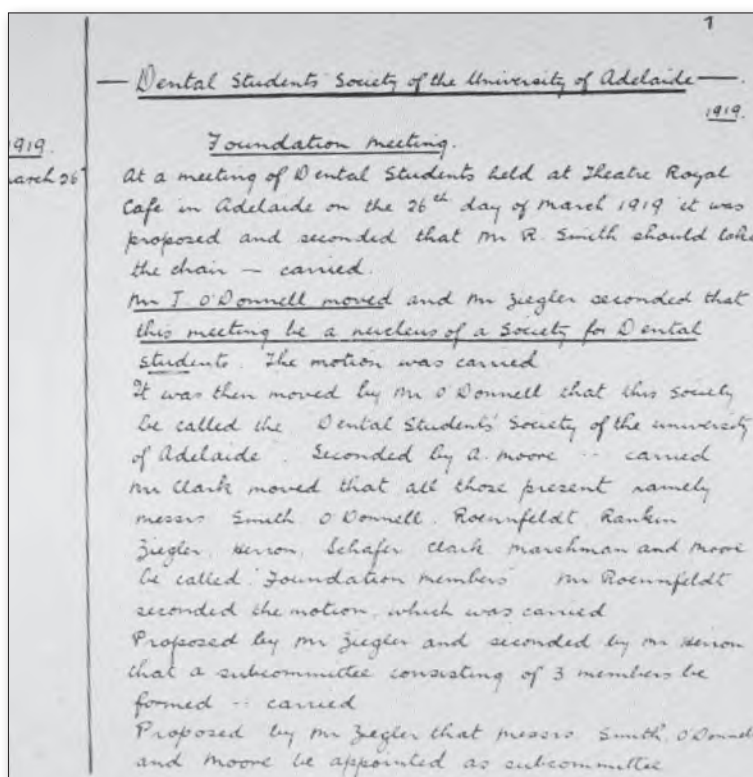 1
— Dental Students Society of the University of Adelaide —.
1919.
Foundation meeting.
1919.
march 26
At a meeting of Dental Students held at Theatre Royal
Cafe in Adelaide on the 26th day of March 1919 it was
proposed and seconded that Mr R. Smith should take
the chair — carried.
Mr T. O'Donnell moved and Mr Ziegler seconded that
this meeting be a nucleus of a Society for Dental
students. The motion was carried
It was then moved by Mr O'Donnell that this Society
be called the Dental Students' Society of the university
of Adelaide. Seconded by A. Moore -- carried
Mr Clark moved that all those present namely
messrs Smith O'Donnell, Roennfeldt, Rankin
Ziegler, Herron, Schafer, Clark Marshman and Moore
be called "Foundation members" Mr Roennfeldt
seconded the motion, which was carried
Proposed by Mr Ziegler and seconded by Mr Herron
that a subcommittee consisting of 3 members be
formed -- carried
Proposed by Mr Ziegler that messrs Smith, O'Donnell
and Moore be appointed as subcommittee